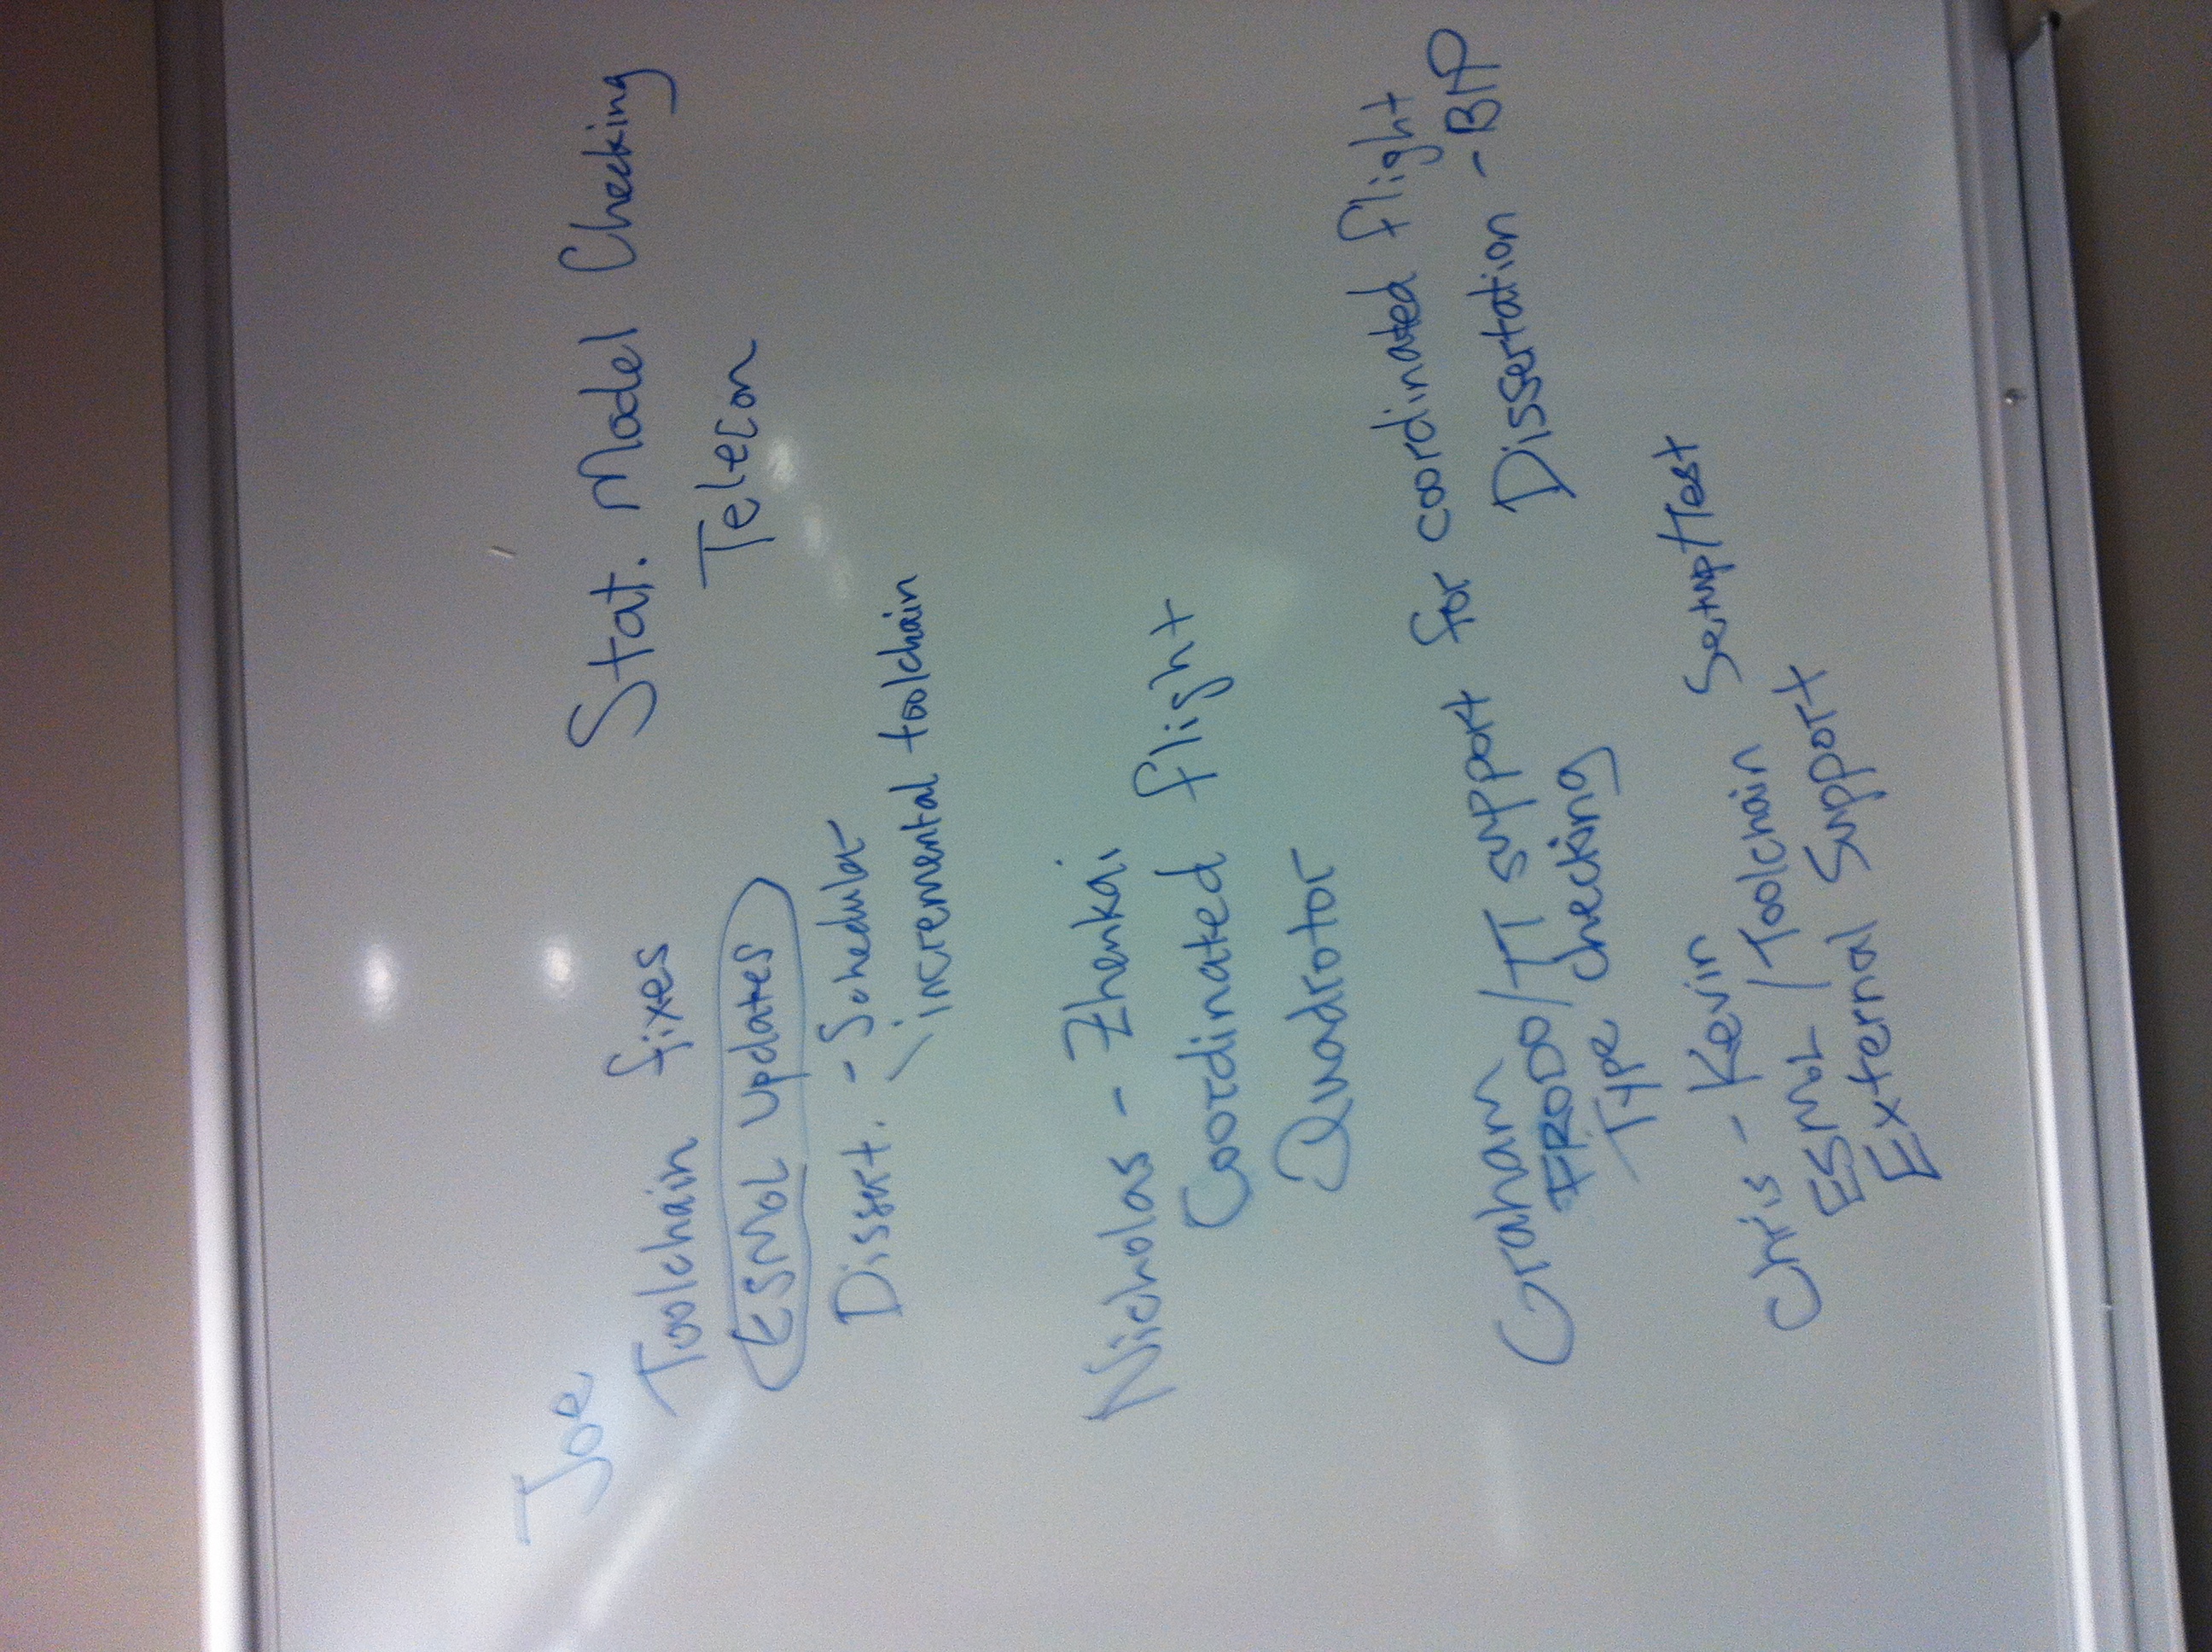 Joe
Toolchain fixes
ESMoL Updates
Dissert. - Scheduler
\ incremental toolchain
Stat. Model Checking
Telecon
Nicholas - Zhenkai
Coordinated flight
Quadrotor
Graham
FRODO/TT support for coordinated flight
Type checking
Dissertation - BIP
Chris - Kevin
ESMoL / Toolchain Setup/Test
External Support